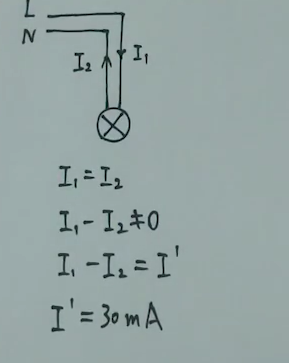 L
N
I₂ I₁
I₁ = I₂
I₁ - I₂ ≠ 0
I₁ - I₂ = I'
I' = 30 mA